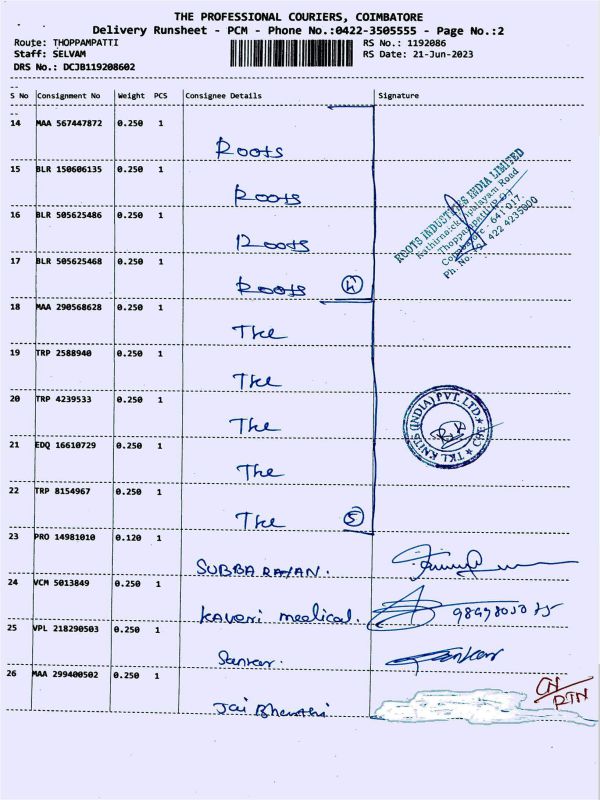 THE PROFESSIONAL COURIERS, COIMBATORE
Delivery Runsheet - PCM - Phone No.:0422-3505555 - Page No.:2
Route: THOPPAMPATTI RS No.: 1192086
Staff: SELVAM RS Date: 21-Jun-2023
DRS No.: DCJB119208602
S No Consignment No Weight PCS Consignee Details Signature
14 MAA 567447872 0.250 1
Roots
15 BLR 150606135 0.250 1
Roots
16 BLR 505625486 0.250 1
Roots
17 BLR 505625468 0.250 1
Roots 4
ROOTS INDUSTRIES INDIA LIMITED
Kathirnaickenpalayam Road
Thoppampatti
Coimbatore - 641 017.
Ph. No. 422 4235800
18 MAA 290568628 0.250 1
Tkl
19 TRP 2588940 0.250 1
Tkl
20 TRP 4239533 0.250 1
Tkl
21 EDQ 16610729 0.250 1
Tkl
22 TRP 8154967 0.250 1
Tkl 5
TKL KNITS (INDIA) PVT. LTD. CBE
23 PRO 14981010 0.120 1
SUBBARAYAN.
24 VCM 5013849 0.250 1
Kaveri medical.
25 VPL 218290503 0.250 1
Sankar. Sankar
26 MAA 299400502 0.250 1
Jai Bharathi
RTN